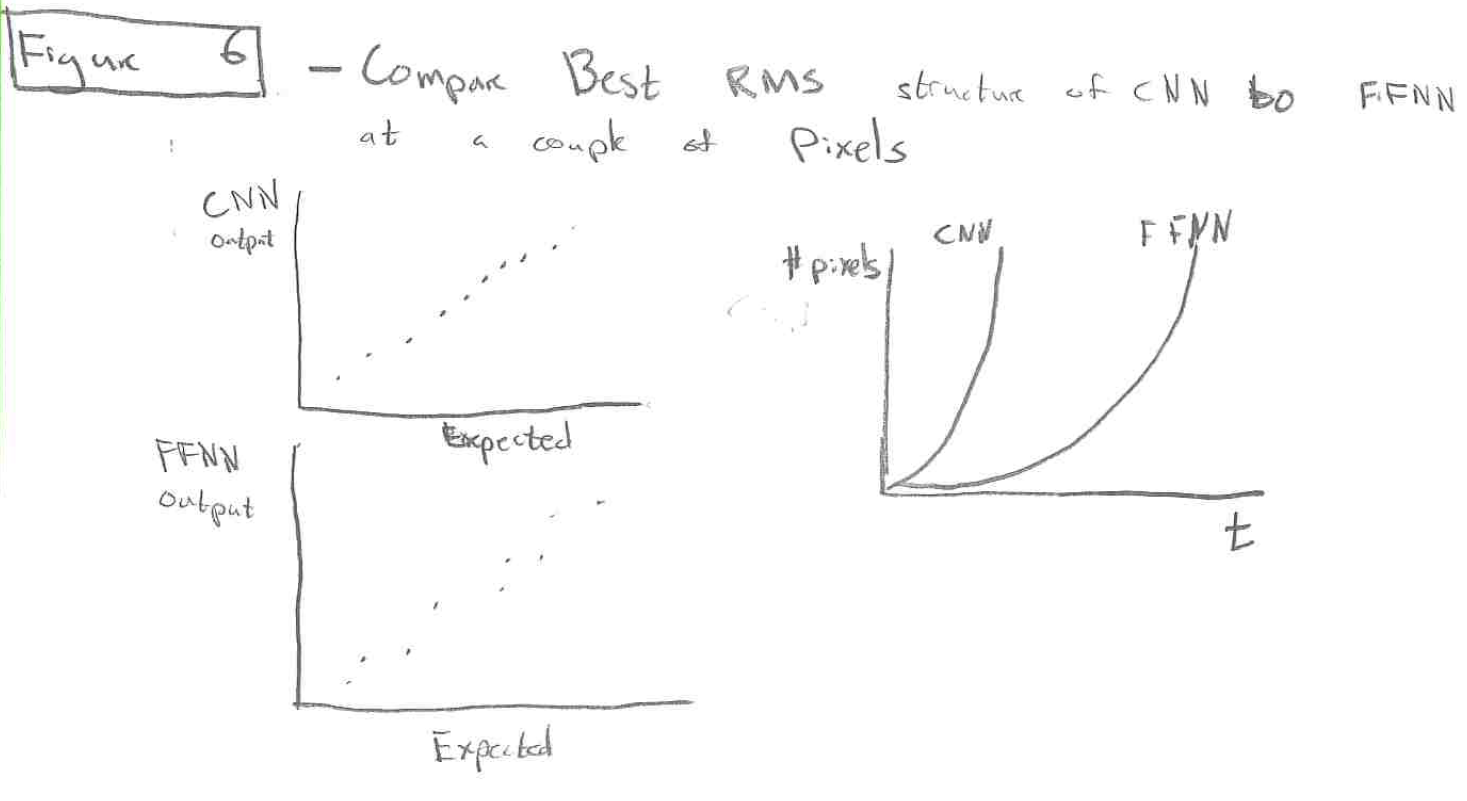 Figure 6 - Compare Best RMS structure of CNN to FFNN
at a couple of Pixels
CNN
Output
Expected
FFNN
Output
Expected
# pixels
CNN
FFNN
t